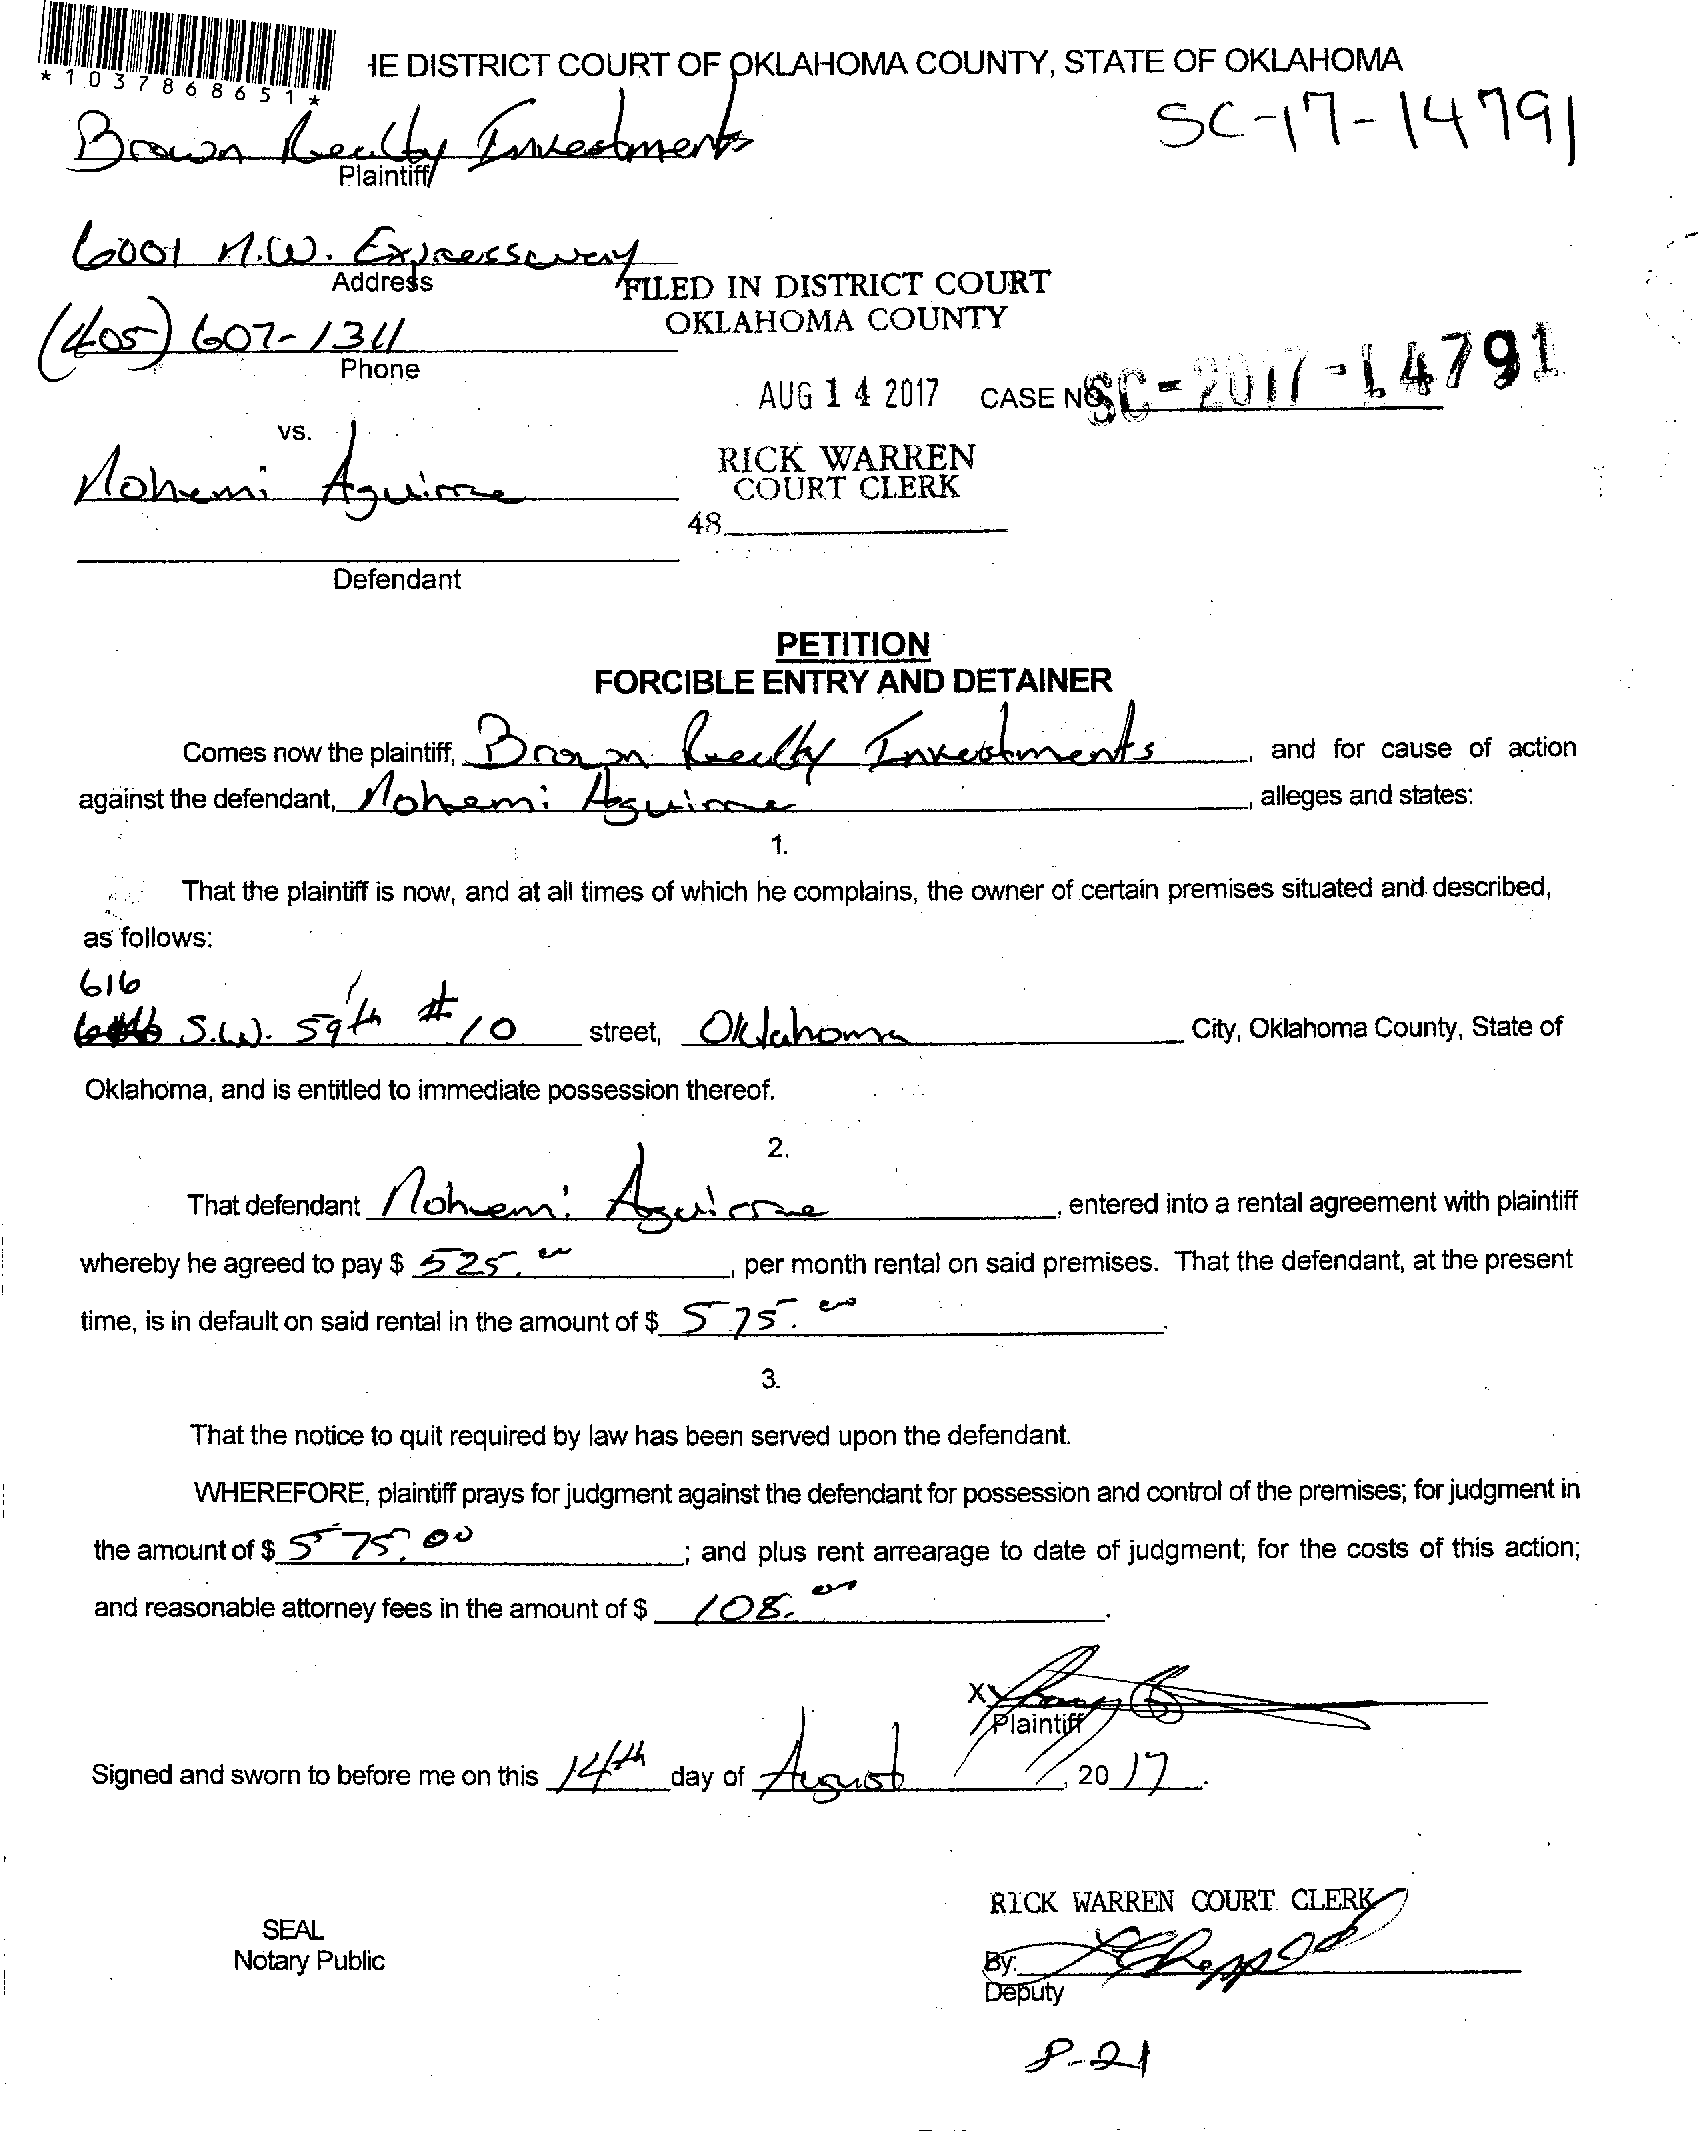 *1037868651*
HE DISTRICT COURT OF OKLAHOMA COUNTY, STATE OF OKLAHOMA
SC-17-14791
Brown Realty Investments
Plaintiff
6001 N.W. Expressway
Address
FILED IN DISTRICT COURT
OKLAHOMA COUNTY
(405) 607-1311
Phone
AUG 14 2017 CASE NO. SC-2017-14791
vs.
Nohemi Aguirre
RICK WARREN
COURT CLERK
48
Defendant
PETITION
FORCIBLE ENTRY AND DETAINER
Comes now the plaintiff, Brown Realty Investments, and for cause of action
against the defendant, Nohemi Aguirre, alleges and states:
1.
That the plaintiff is now, and at all times of which he complains, the owner of certain premises situated and described,
as follows:
616
S.W. 59th #10 street, Oklahoma City, Oklahoma County, State of
Oklahoma, and is entitled to immediate possession thereof.
2.
That defendant Nohemi Aguirre, entered into a rental agreement with plaintiff
whereby he agreed to pay $ 525.00, per month rental on said premises. That the defendant, at the present
time, is in default on said rental in the amount of $ 575.00.
3.
That the notice to quit required by law has been served upon the defendant.
WHEREFORE, plaintiff prays for judgment against the defendant for possession and control of the premises; for judgment in
the amount of $ 575.00; and plus rent arrearage to date of judgment; for the costs of this action;
and reasonable attorney fees in the amount of $ 108.00.
X
Plaintiff
Signed and sworn to before me on this 14th day of August, 2017.
RICK WARREN COURT CLERK
SEAL
Notary Public
By:
Deputy
8-21